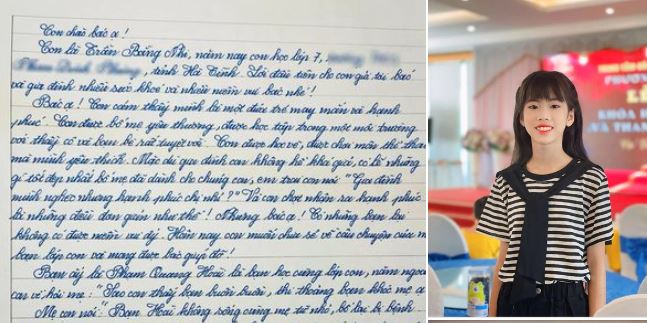 Con chào bác ạ!
Con là Trần Băng Nhi, năm nay con học lớp 7,
, tỉnh Hà Tĩnh. Lời đầu tiên cho con gửi tới bác
và gia đình nhiều sức khoẻ và nhiều niềm vui bác nhé!
Bác ạ! Con cảm thấy mình là một đứa trẻ may mắn và hạnh
phúc. Con được bố mẹ yêu thương, được học tập trong một môi trường
với thầy cô và bạn bè rất tuyệt vời. Con được học vẽ, được chơi môn thể thao
mà mình yêu thích. Mặc dù gia đình con không hề khá giả, có lẽ những
gì tốt đẹp nhất bố mẹ đã dành cho chúng con, em trai con nói: "Gia đình
mình nghèo nhưng hạnh phúc chị nhỉ?" Và con chợt nhận ra hạnh phúc
là những điều đơn giản như thế! Nhưng bác ạ! Có những bạn lại
không có được niềm vui ấy. Hôm nay con muốn chia sẻ về câu chuyện của một
bạn lớp con và mong được bác giúp đỡ!
Bạn ấy là Phạm Quang Hoài là bạn học cùng lớp con, năm ngoái
con về hỏi mẹ: "Sao con thấy bạn buồn buồn, thi thoảng bạn khóc mẹ ạ
Mẹ con nói: Bạn Hoài không sống cùng mẹ từ nhỏ, bố lại bị bệnh
PHƯƠN
LỄ
KHÓA H
VÀ THAN